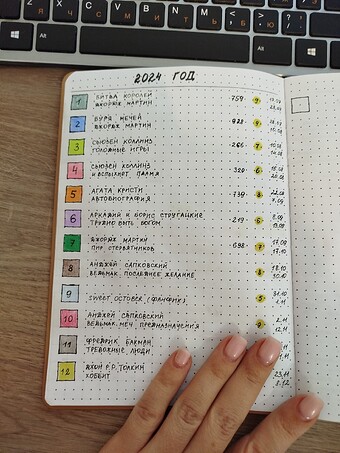 2024 ГОД
1 БИТВА КОРОЛЕЙ
ДЖОРДЖ МАРТИН
759
2 БУРЯ МЕЧЕЙ
ДЖОРДЖ МАРТИН
928
3 СЬЮЗЕН КОЛЛИНЗ
ГОЛОДНЫЕ ИГРЫ
266 7
4 СЬЮЗЕН КОЛЛИНЗ
И ВСПЫХНЕТ ПЛАМЯ
320 6
5 АГАТА КРИСТИ
АВТОБИОГРАФИЯ
739 8
6 АРКАДИЙ И БОРИС СТРУГАЦКИЕ
ТРУДНО БЫТЬ БОГОМ
219 6
7 ДЖОРДЖ МАРТИН
ПИР СТЕРВЯТНИКОВ
698 7
17.09
17.10
8 АНДЖЕЙ САПКОВСКИЙ
ВЕДЬМАК. ПОСЛЕДНЕЕ ЖЕЛАНИЕ
8
18.10
30.10
9 SWEET OCTOBER (ФАНФИК)
5
31.10
2.11
10 АНДЖЕЙ САПКОВСКИЙ
ВЕДЬМАК. МЕЧ ПРЕДНАЗНАЧЕНИЯ
2.11
12.11
11 ФРЕДРИК БАКМАН
ТРЕВОЖНЫЕ ЛЮДИ
12 ДЖОН Р.Р. ТОЛКИН
ХОББИТ
23.11
8.12
Alt
Alt